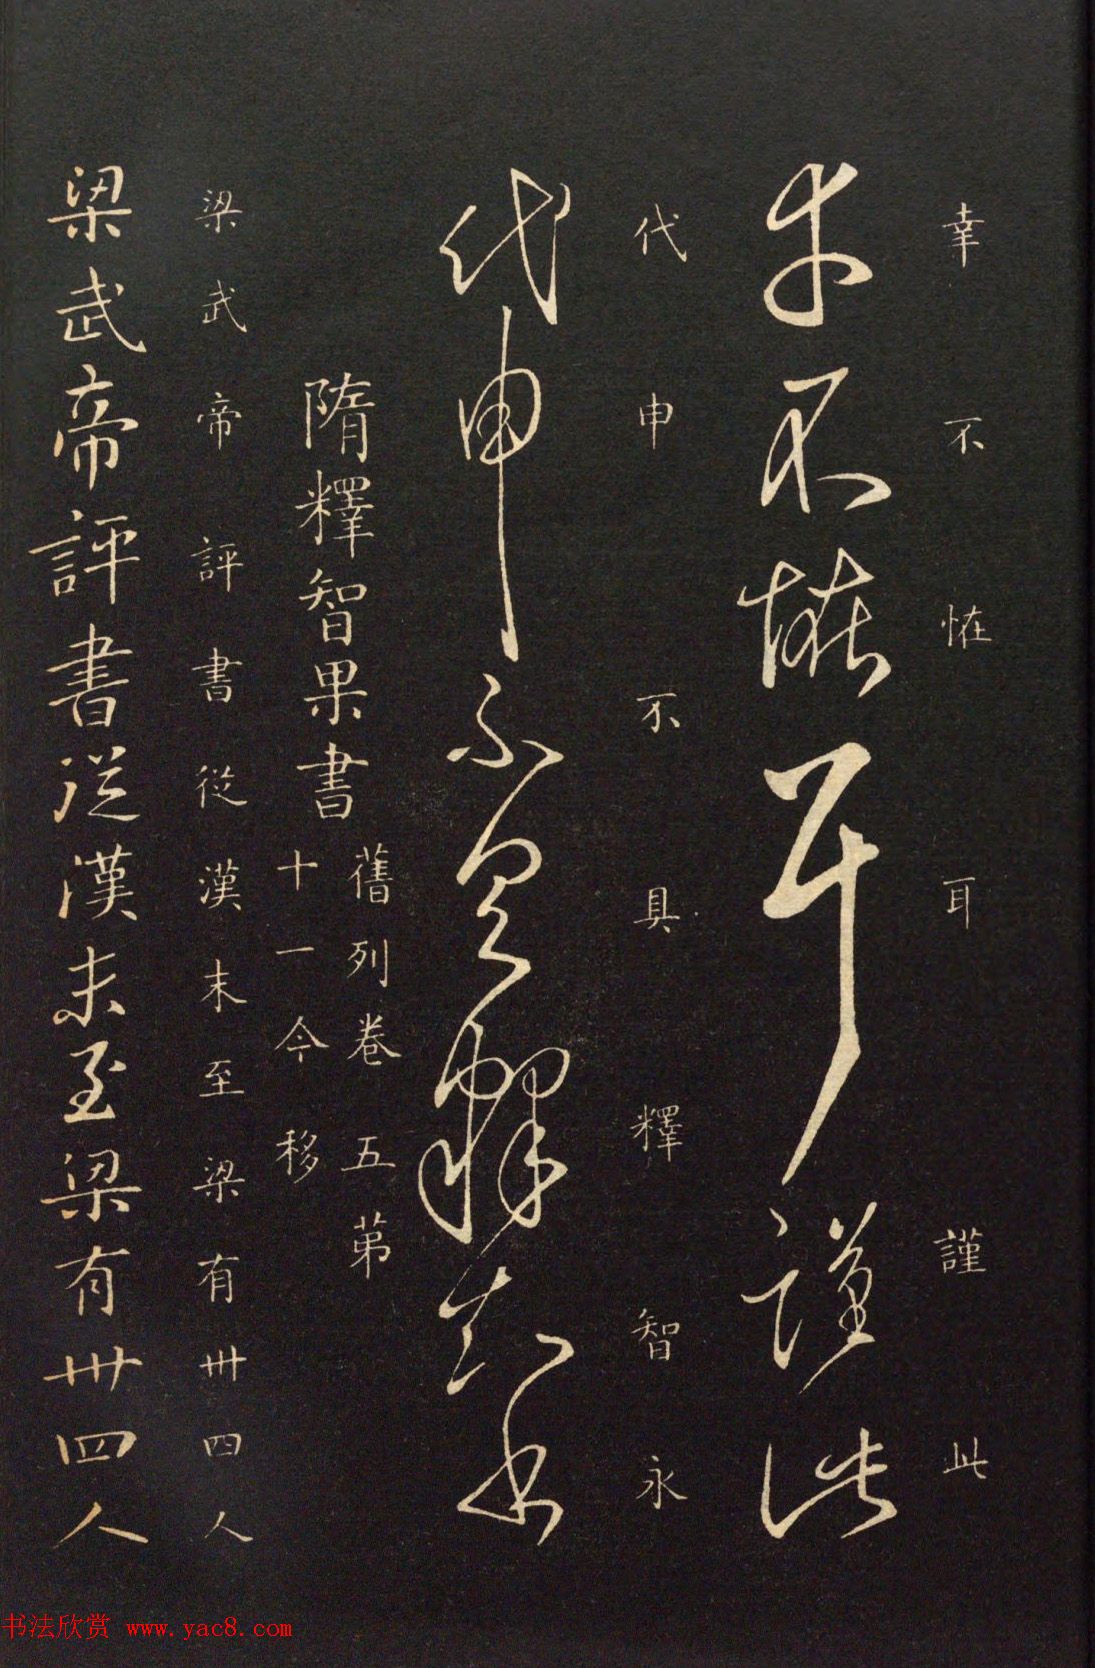 幸不恠耳謹此
幸不恠耳謹此
代申不具釋智永
代申不具釋智永
舊列卷五第
十一今移
隋釋智果書
梁武帝評書從漢末至梁有卅四人
梁武帝評書從漢末至梁有卅四人
书法欣赏 www.yac8.com